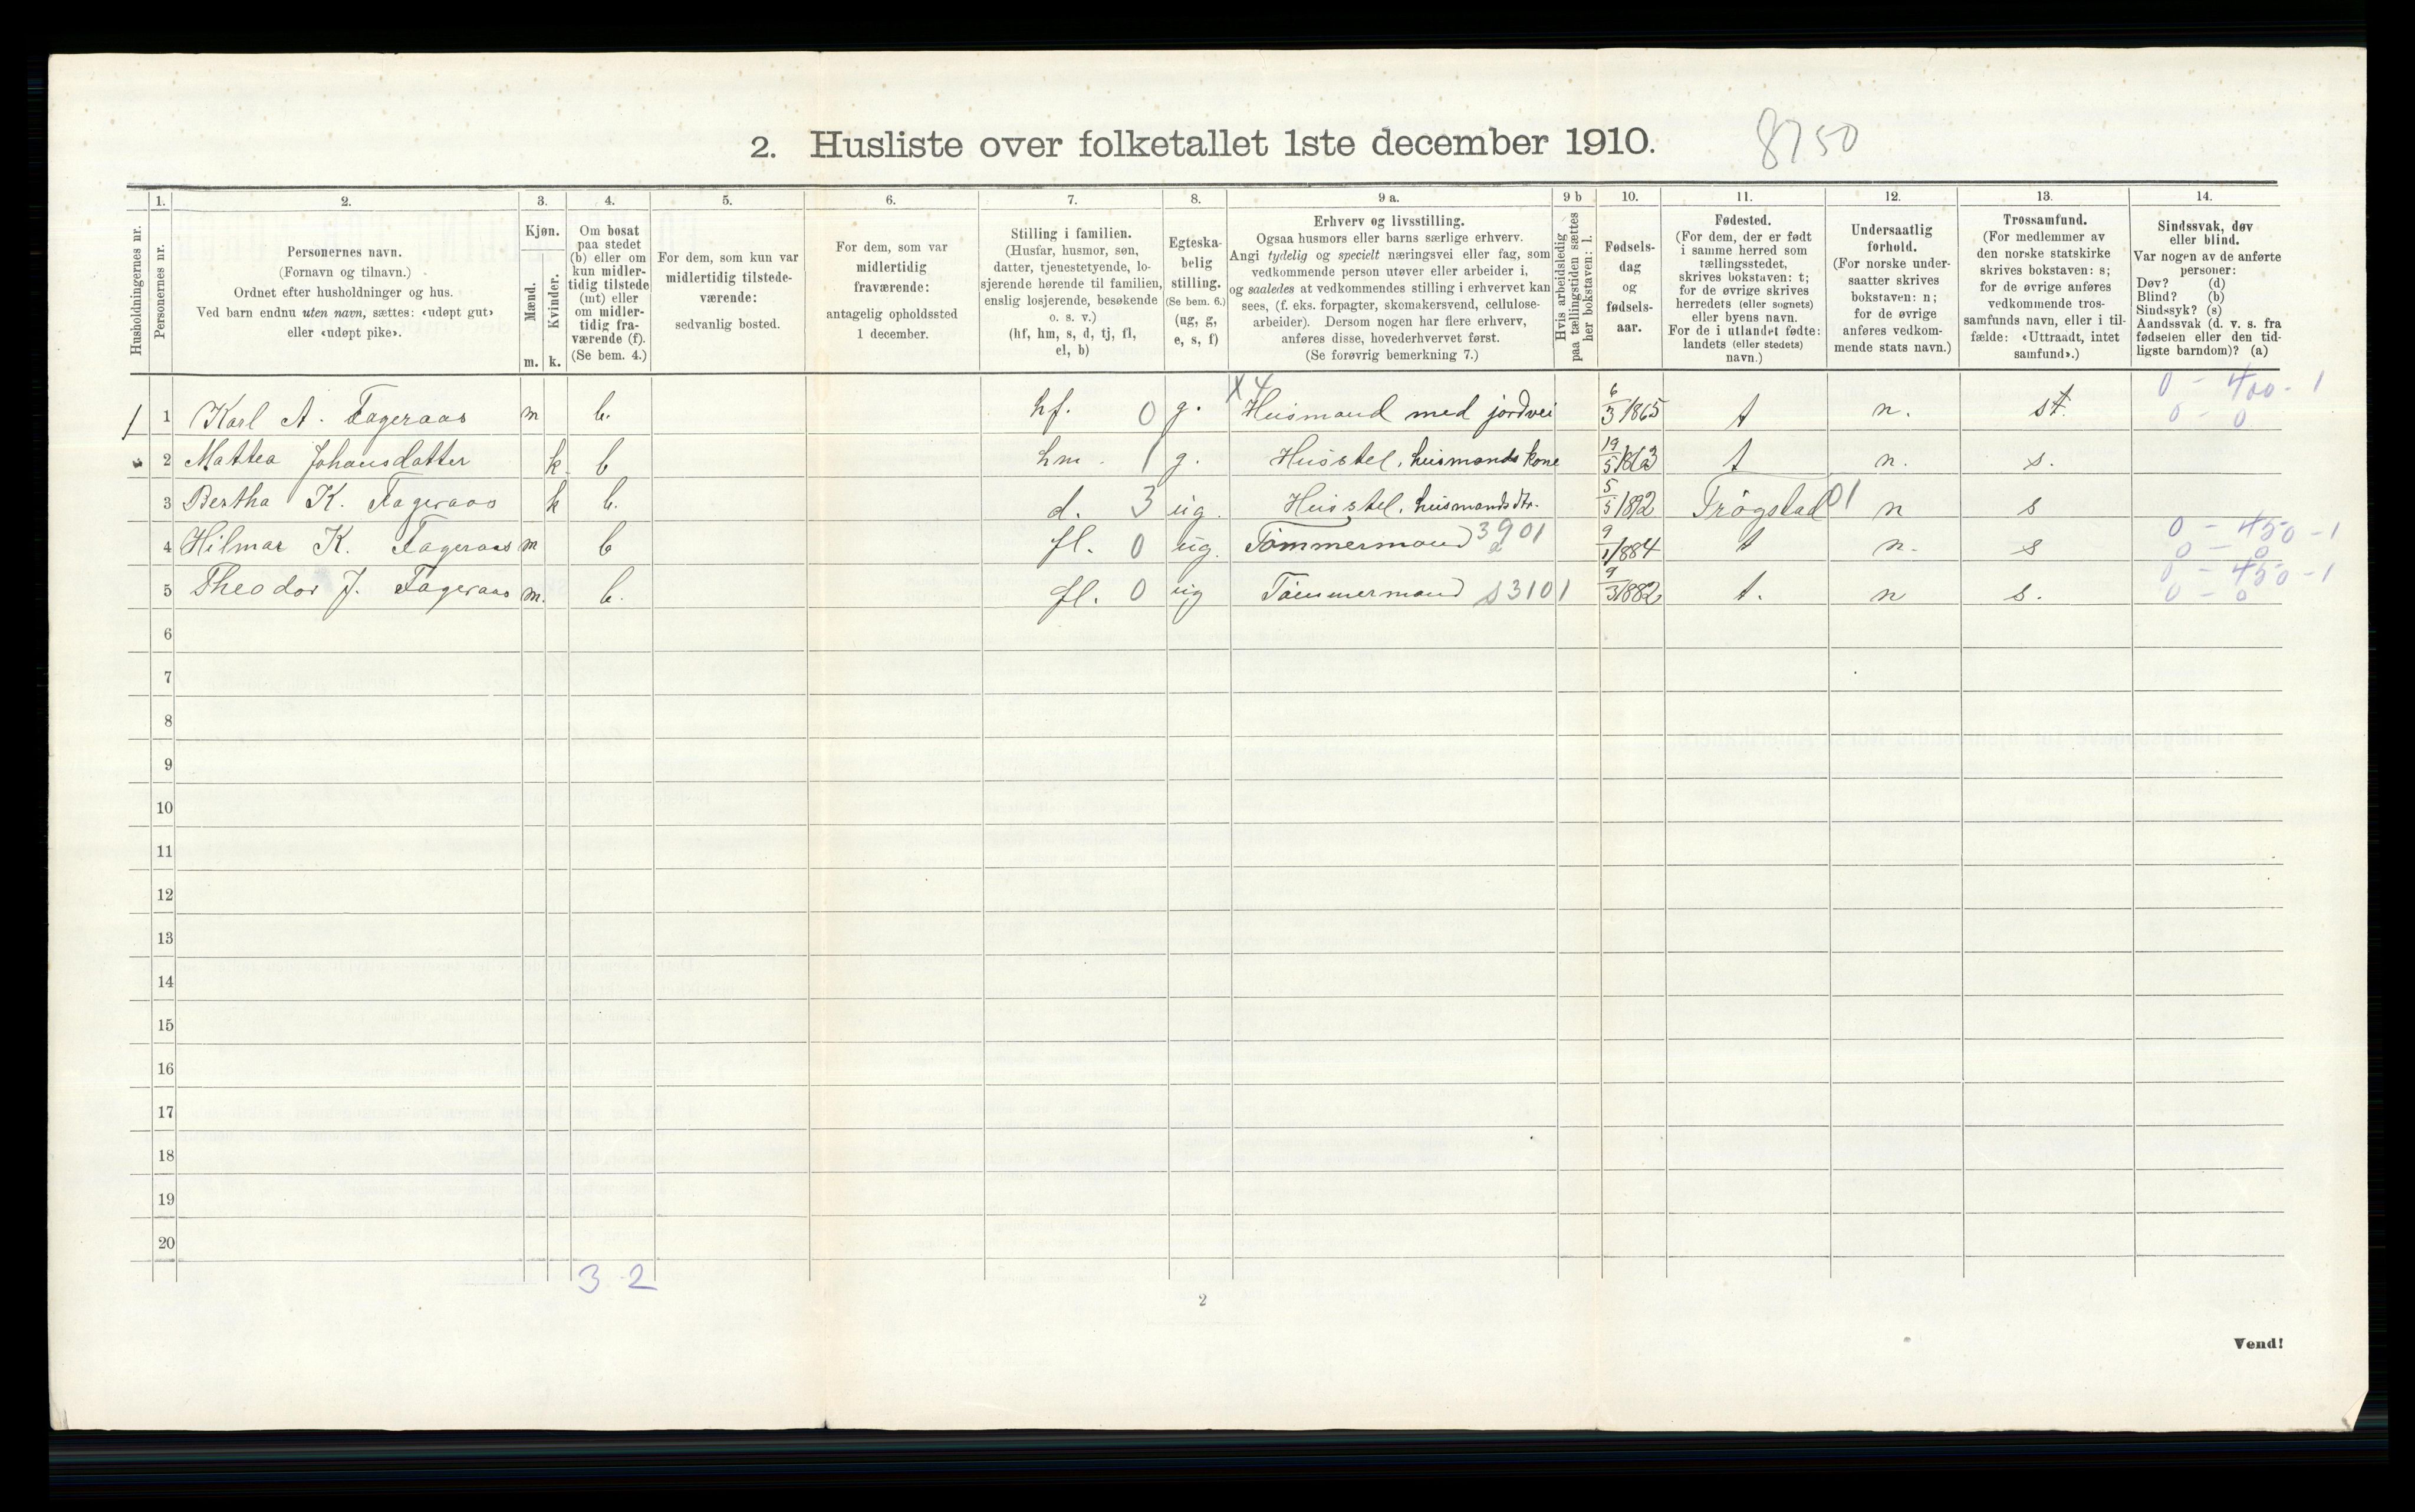 2. Husliste over folketallet 1ste december 1910. 8750
1. 2. 3. 4. 5. 6. 7. 8. 9 a. 9 b 10. 11. 12. 13. 14.
Husholdningernes nr.
Personernes nr.
Personernes navn.
(Fornavn og tilnavn.)
Ordnet efter husholdninger og hus.
Ved barn endnu uten navn, sættes: «udøpt gut»
eller «udøpt pike».
Kjøn.
Mænd.
Kvinder.
m. k.
Om bosat
paa stedet
(b) eller om
kun midler-
tidig tilstede
(mt) eller
om midler-
tidig fra-
værende (f).
(Se bem. 4.)
For dem, som kun var
midlertidig tilstede-
værende:
sedvanlig bosted.
For dem, som var
midlertidig
fraværende:
antagelig opholdssted
1 december.
Stilling i familien.
(Husfar, husmor, søn,
datter, tjenestetyende, lo-
sjerende hørende til familien,
enslig losjerende, besøkende
o. s. v.)
(hf, hm, s, d, tj, fl,
el, b)
Egteska-
belig
stilling.
(Se bem. 6.)
(ug, g,
e, s, f)
Erhverv og livsstilling.
Ogsaa husmors eller barns særlige erhverv.
Angi tydelig og specielt næringsvei eller fag, som
vedkommende person utøver eller arbeider i,
og saaledes at vedkommendes stilling i erhvervet kan
sees, (f. eks. forpagter, skomakersvend, cellulose-
arbeider). Dersom nogen har flere erhverv,
anføres disse, hovederhvervet først.
(Se forøvrig bemerkning 7.)
Hvis arbeidsledig
paa tællingstiden sættes
her bokstaven: l.
Fødsels-
dag
og
fødsels-
aar.
Fødested.
(For dem, der er født
i samme herred som
tællingsstedet,
skrives bokstaven: t;
for de øvrige skrives
herredets (eller sognets)
eller byens navn.
For de i utlandet fødte:
landets (eller stedets)
navn.)
Undersaatlig
forhold.
(For norske under-
saatter skrives
bokstaven: n;
for de øvrige
anføres vedkom-
mende stats navn.)
Trossamfund.
(For medlemmer av
den norske statskirke
skrives bokstaven: s;
for de øvrige anføres
vedkommende tros-
samfunds navn, eller i til-
fælde: «Uttraadt, intet
samfund».)
Sindssvak, døv
eller blind.
Var nogen av de anførte
personer:
Døv? (d)
Blind? (b)
Sindssyk? (s)
Aandssvak (d. v. s. fra
fødselen eller den tid-
ligste barndom)? (a)
1 1 Karl A. Fageraas m b. hf. 0 g. X4 Husmand med jordvei 6/3 1865 t n. st. 0 - 400 - 1 0 - 0
2 Mattea Johansdatter k b hm. 1 g. Husstel, husmands kone 19/5 1863 t n. s.
3 Bertha K. Fageraas k b. d. 3 ug. Husstel, husmandsdtr. 5/5 1892 Trøgstad 01 n s
4 Hilmar K. Fageraas m b fl. 0 ug. Tømmermand 3901 9/1 1884 t n. s 0 - 450 - 1 0 - 0
5 Theodor J. Fageraas m. b. fl. 0 ug Tømmermand s3101 9/3 1882 t. n s. 0 - 450 - 1 0 - 0
6
7
8
9
10
11
12
13
14
15
16
17
18
19
20
3 2
2
Vend!